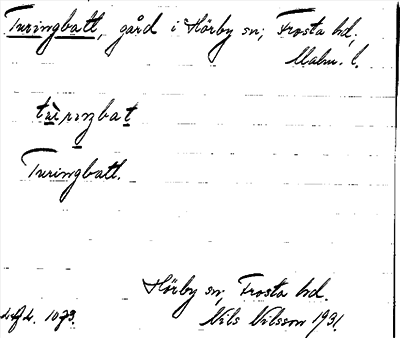 Turingbatt, gård i Hörby sn, Frosta hd,
Malm. l.
Turingbatt.
Hörby sn, Frosta hd.
Nils Nilsson 1931.